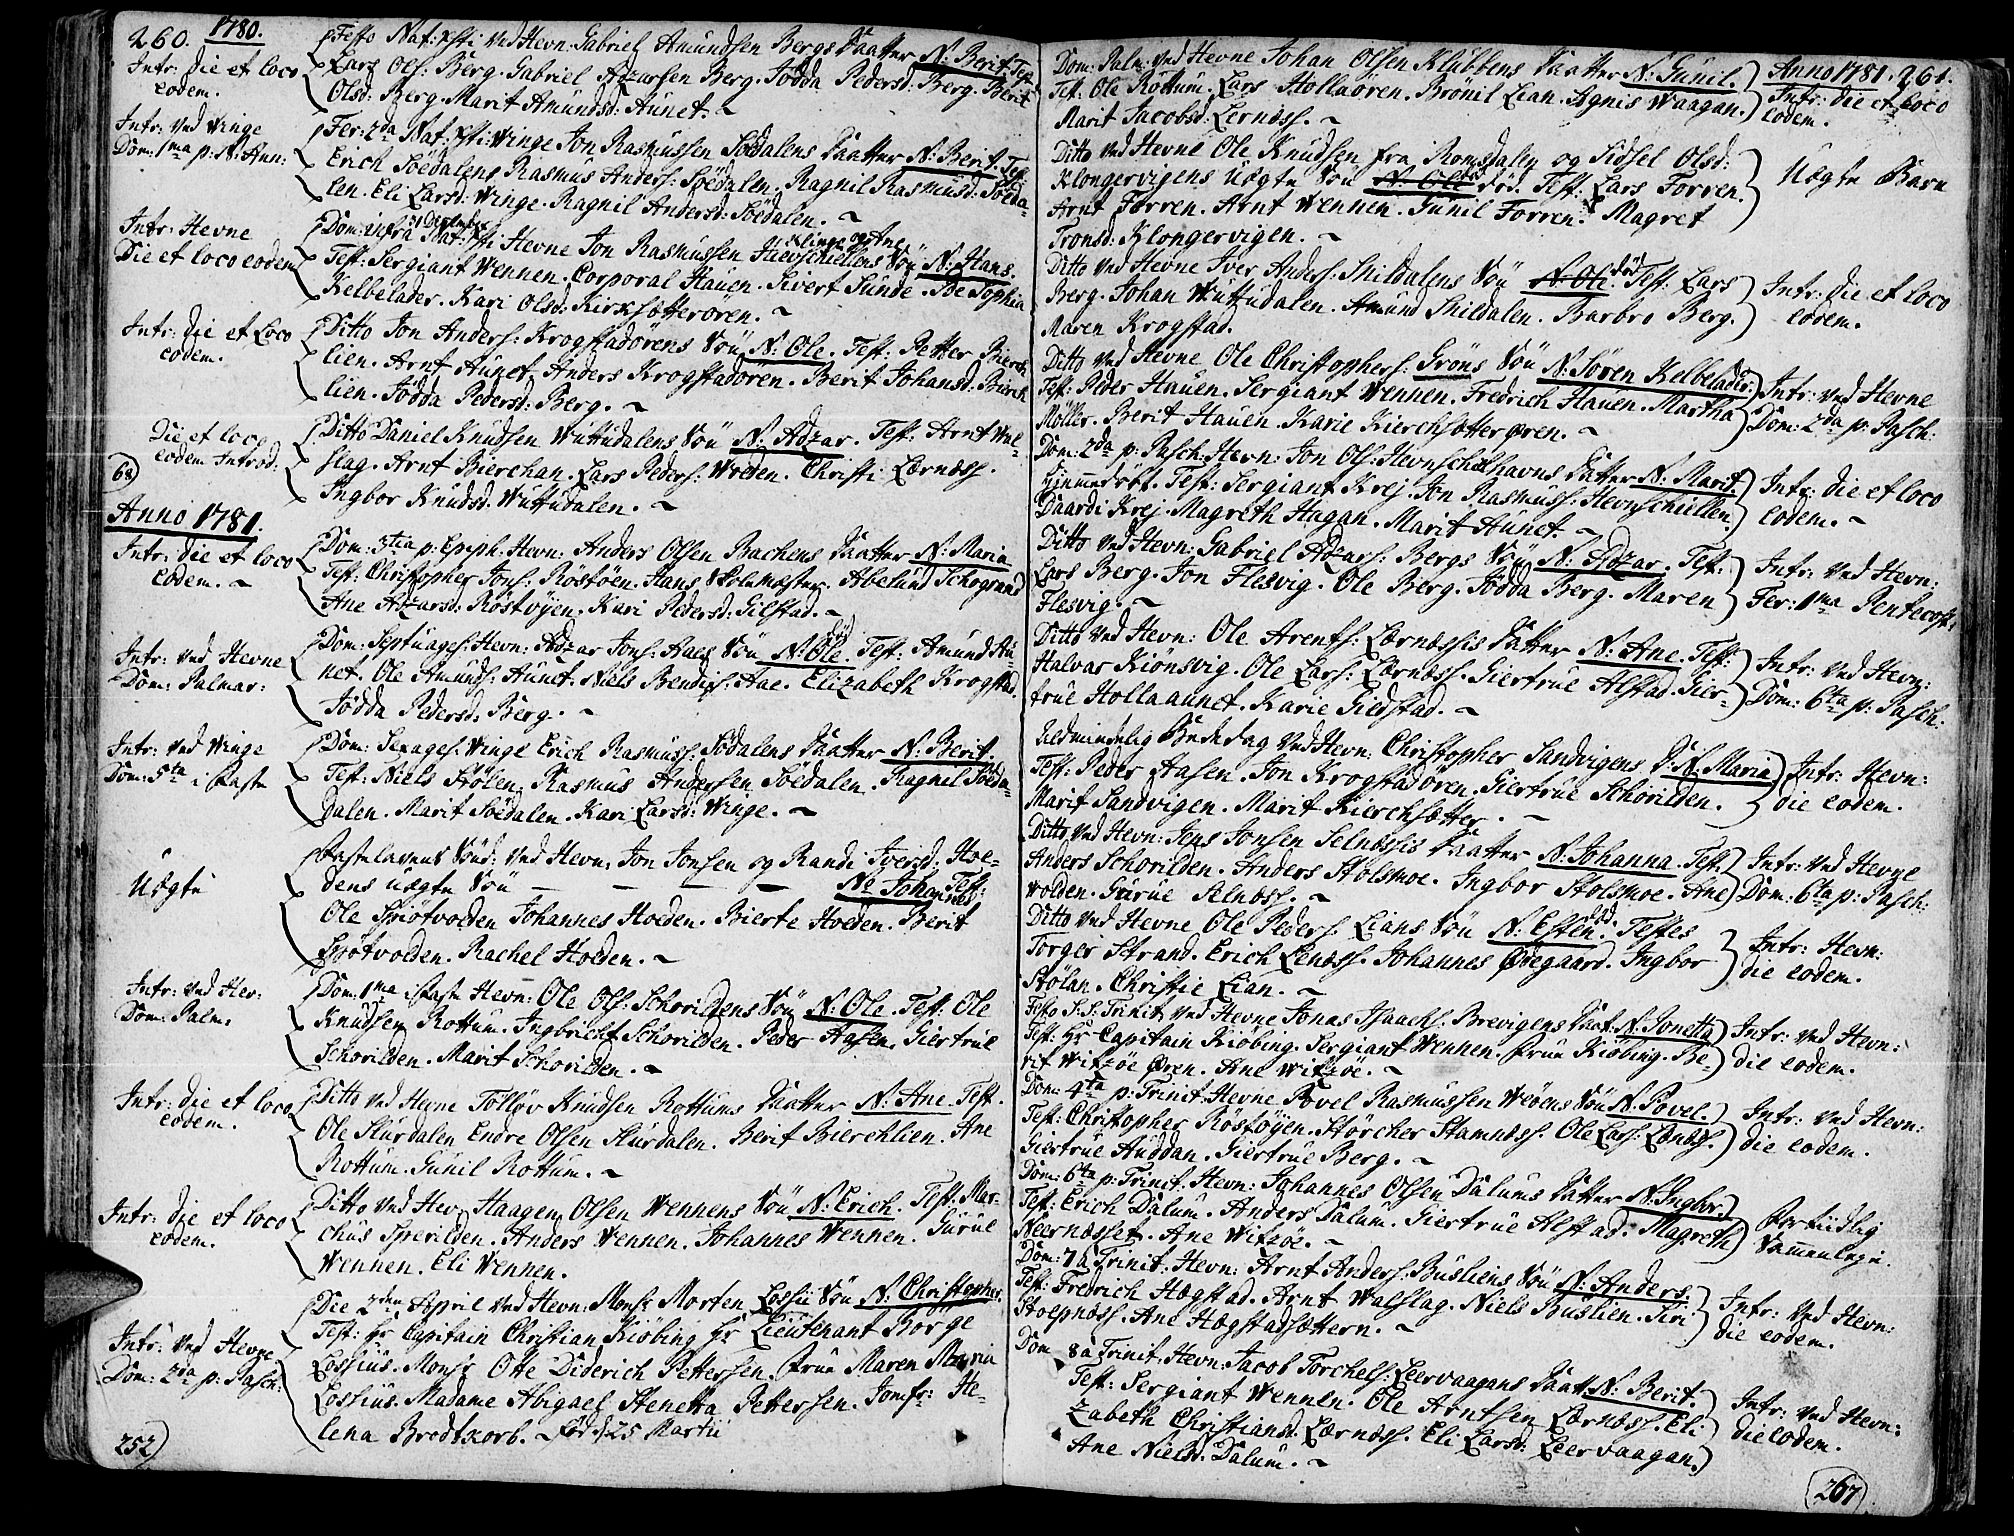 260. 1780.
Intr: die et loco
eodem.
Festo Nat: Xsti ved Hevn: Gabriel Amundsen Bergs Daatter N: Berit Test:
Lars Ols: Berg. Gabriel Adzersen Berg. Jödda Pedersd: Berg. Berit
Olsd: Berg. Marit Amundsd: Aunet.
Intr: ved Winge
Dom: 1ma p: N: Ann:
Fer: 2da Nat: Xsti: Winge Jon Rasmussen Söedalens Daatter N: Berit. Test:
Erich Söedalens Rasmus Anders: Söedalen. Ragnil Rasmusd: Söeda-
len. Eli Larsd: Winge. Ragnil Andersd: Söedalen.
Intr: Hevne
Die et loco eodem
Dom: infra Nat: Xsti: Hevne Jon Rasmussen Hevnschiellens Sön N: Hans.
Test: Sergiant Wennen. Corporal Hauen. Sivert Sunde. Sophia
Kelbelader. Kari Olsd: Kirksetterören.
Intr: die et Loco
eodem.
Ditto Jon Anders: Krogstadörens Sön N: Ole. Test: Petter Bierch
lien. Arnt Aunet. Anders Krogstadören. Berit Johansd: Bierch
lien. Jödda Pedersd: Berg.
Die et loco
eodem Introd:
Ditto Daniel Knudsen Wuttudalens Sön N: Adzar. Test: Arnt Wal-
slag. Arnt Bierchan. Lars Peders: Wreden. Christi Lernæss.
Ingbor Knudsd: Wuttudalen.
68
Anno 1781.
Intr: die et loco
eodem.
Dom: 3tia p: Epiph: Hevn: Anders Olsen Bachens Daatter N: Maria
Test: Christopher Jons: Röstöen. Hans Skolemester. Abelund Schogrand
Ane Adzarsd: Röstöyen. Kari Pedersd: Gilstad.
Intr: ved Hevne
Dom: Palmar:
Dom: Septuages: Hevn: Adzar Jons: Aaes Sön N: Ole. Test: Amund Au-
net. Ole Amunds: Aunet. Niels Bendixs: Aae. Elizabeth Krogstad.
Jödda Pedersd: Berg.
Intr: ved Winge
Dom: 5ta i Faste
Dom: Sexages: Winge Erich Rasmuss: Södalens Daatter N: Berit.
Test: Niels Stölen. Rasmus Andersen Söedalen. Ragnel Söeda-
dalen. Marit Söedalen. Kari Larsd: Winge.
Uægte
Fastelavens Sönd: ved Hevn: Jon Jonsen og Randi Iversd: Hoe-
dens uægte Sön N: Johannes Test:
Ole Spiötvolden Johannes Hoeden. Bierte Hoeden. Berit
Spötvolden. Rachel Hoeden.
Intr: ved Hev:
Dom: Palm:
Dom: 1ma i Faste Hevn: Ole Ols: Schorildens Sön N: Ole. Test: Ole
Knudsen Rottum. Ingbricht Schorilden. Peder Aasen. Giertrue
Schorilden. Marit Schorilden.
Intr: die et loco
eodem.
Ditto ved Hevne Tolløv Knudsen Rottums Daatter N: Ane. Test.
Ole Slurdalen Endre Olsen Slurdalen. Berit Bierchlien. Ane
Rottum. Gunil Rottum.
Intr: die et loco
eodem.
Ditto ved Hev: Haagen Olsen Wennens Sön N: Erich. Test. Mar-
chus Sperilden. Anders Wennen. Johannes Wennen. Gurue
Wennen. Eli Wennen.
Intr: ved Hevne
Dom: 2da p: Pasch:
Die 2den April ved Hevn: Monsr Morten Lossii Sön N: Christopher.
Test: Hr Capitain Christian Kiöbing Hr Lieutenant Börge
Lossius. Monsr Otte Diderich Pettersen. Frue Maren Maria
Lossius. Madame Abigael Stenetta Pettersen. Jomfr: He-
lena Bredtkorb. Föd d 25 Martii
252
Anno 1781. 261.
Dom: Palm: ved Hevne Johan Olsen Klubbens Daatter N: Gunil.
Test: Ole Rottum. Lars Hollaören. Brönil Lian. Agnis Waagan.
Marit Jacobsd: Lernæss.
Intr: die et Loco
eodem.
Ditto ved Hevne Ole Knudsen fra Romsdalen og Sidsel Olsd:
Klongervigens uægte Sön N: Ole död. Test: Lars Forren.
Arnt Forren. Arnt Wennen. Gunil Forren. Magret
Tronsd: Klongervigen.
Uægte Barn
Ditto ved Hevne Iver Anders: Skildalens Sön N: Ole död. Test: Lars
Berg. Johan Wuttudalen. Amund Skildalen. Barbro Berg.
Maren Krogstad.
Intr: die et loco
eodem.
Ditto ved Hevne Ole Christophers: Gröns Sön N: Sören Kelbelader.
Test: Peder Hauen. Sergiant Wennen. Fredrich Hauen. Martha
Möller. Berit Hauen. Karie Kierchsætter Ören.
Intr: ved Hevne
Dom: 2da p: Pasch:
Dom: 2da p: Pasch: Hevn: Jon Ols: Hevnschelhavns Datter N: Marit
Hjemmedöbt. Test: Sergiant Krej. Jon Rasmuss: Hevnschiellen
Daardi Krej. Magreth Hagan. Marit Aunet.
Intr: die et loco
eodem.
Ditto ved Hevn: Gabriel Adzars: Bergs Sön N: Adzar. Test:
Lars Berg. Jon Flesvig. Ole Berg. Jödda Berg. Maren
Flesvig.
Intr: ved Hevn:
Fer: 1ma Pentecost:
Ditto ved Hevn: Ole Arents: Lernæssis Datter N: Ane. Test:
Halvar Kiönsvig. Ole Lars: Lernæss. Giertrue Alstad. Gier-
true Hollaaunet. Karie Gildstad.
Intr: ved Hevn:
Dom: 6ta p: Pasch:
Allmindelig Bededag ved Hevn: Christopher Sandvigens D: N: Maria
Test: Peder Aasen. Jon Krogstadören. Giertrue Schorilden.
Marit Sandvigen. Marit Kierchsætter.
Intr: Hevn:
die eodem.
Ditto ved Hevn: Jens Jonsen Selnæssis Daatter N: Johanna. Test.
Anders Schorilden. Anders Stolsmoe. Ingbor Stolsmoe. Ane
Wolden. Gurue Selnæss.
Intr: ved Hevne
Dom: 6ta p: Pasch:
Ditto ved Hevne Ole Peders: Lians Sön N: Esten död. Testes
Torger Strand. Erich Lenæss. Johannes Ödegaard. Ingbor
Stölan. Christie Lian.
Intr: Hevn:
die eodem.
Festo S.S: Trinit: ved Hevne Jonas Isaachs: Brevigens Daat: N: Jonetta
Test: Hr Capitain Kiöbing. Sergiant Wennen. Frue Kiöbing. Be-
rit Witzöe Ören. Ane Witzöe.
Intr: ved Hevn:
die eodem.
Dom: 4ta p: Trinit: Hevne Povel Rasmussen Weöens Sön N: Povel
Test: Christopher Röstöyen. Störcher Stamnæss. Ole Lars: Lenæss.
Giertrue Auddan. Giertrue Berg.
Intr: ved Hevn:
die eodem.
Dom: 6ta p: Trinit: Hevn: Johannes Olsen Dalums Datter N: Ingbor
Test: Erich Dalum. Anders Dalum. Giertrue Alstad. Magreth
Neernæsset. Ane Witzöe.
For tiidlig
Sammenleje.
Dom: 7 à Trinit: Hevn: Arnt Anders: Busliens Sön N: Anders.
Test: Fredrich Hægstad. Arnt Walslag. Niels Buslien. Siri
Stoepnæss. Ane Hægstadsættern.
Intr: ved Hevn:
die eodem.
Dom 8 à Trinit: Hevn: Jacob Torchels: Leervaagans Daatt: N: Berit.
Test: Sergiant Wennen. Ole Arntsen Lernæss. Eli
zabeth Christiansd: Lernæss. Eli Larsd: Leervaagan.
Ane Nielsd: Dalum.
Intr: ved Hevn:
die eodem.
267